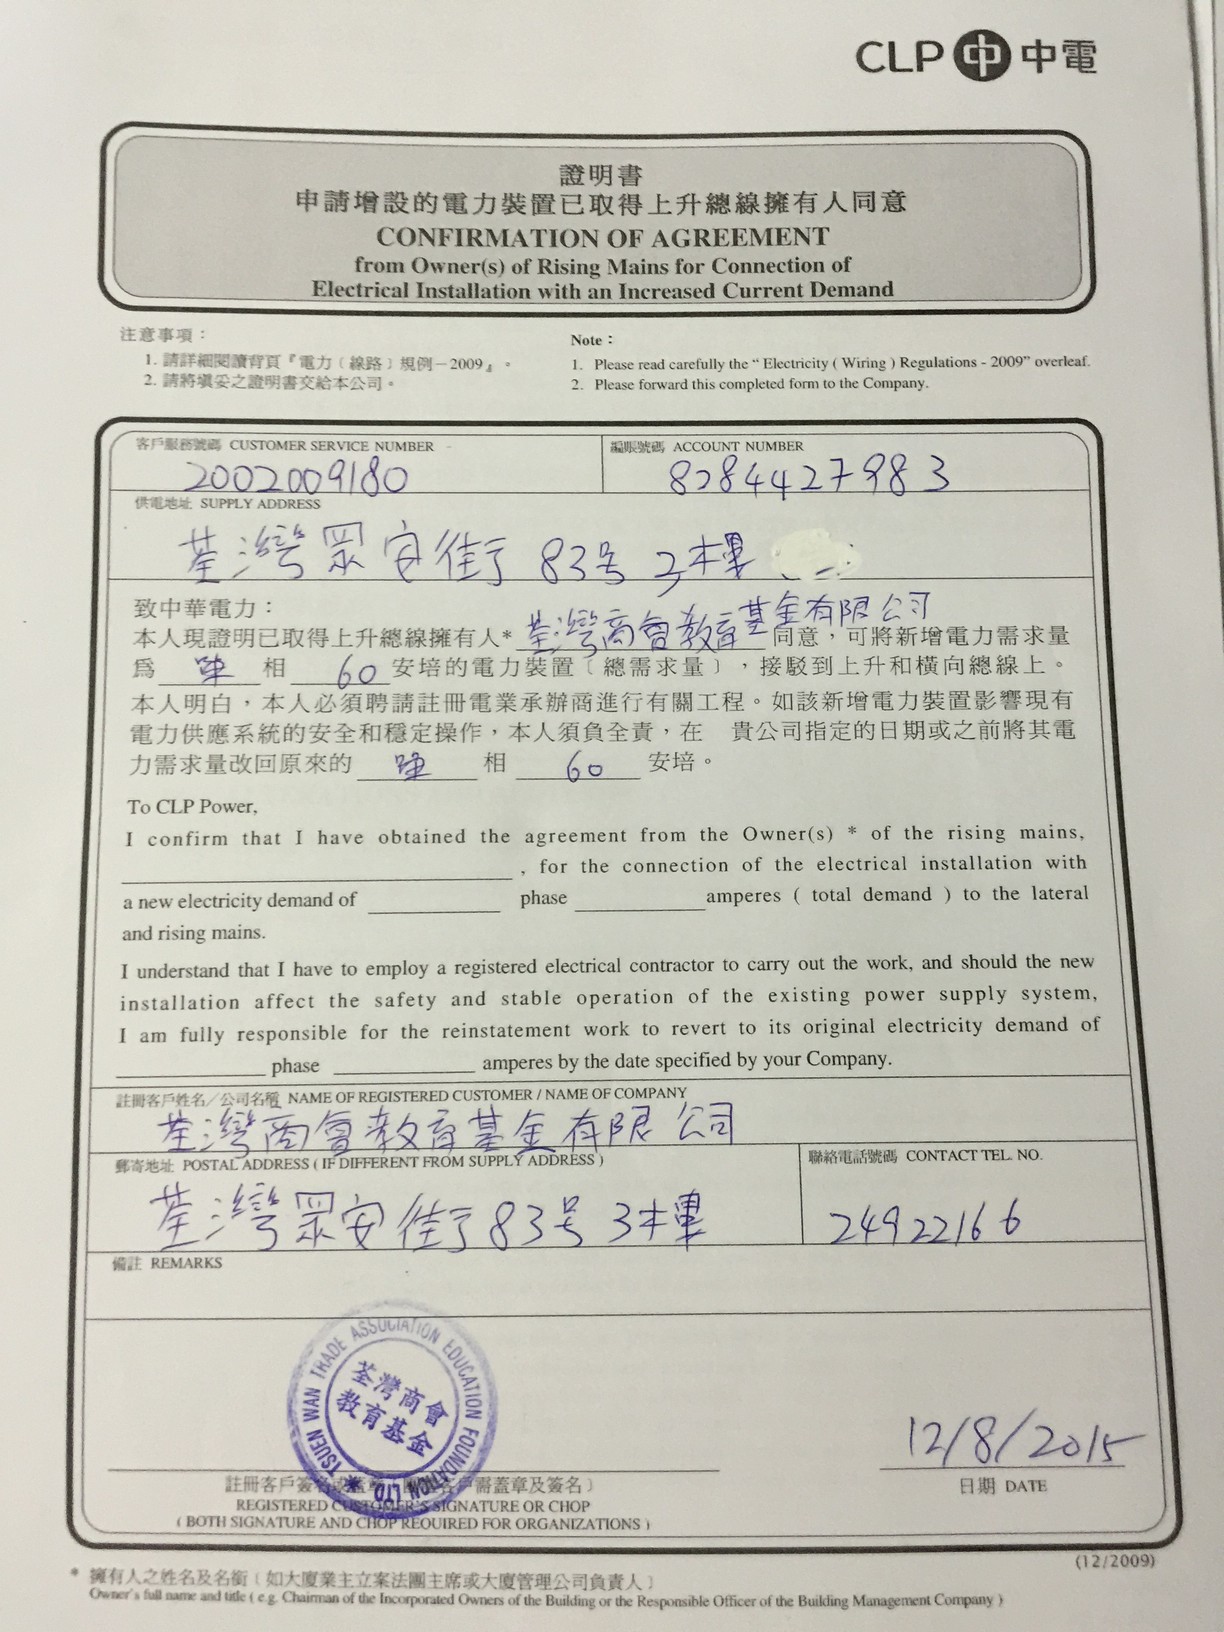 CLP 中 中電
證明書
申請增設的電力裝置已取得上升總線擁有人同意
CONFIRMATION OF AGREEMENT
from Owner(s) of Rising Mains for Connection of
Electrical Installation with an Increased Current Demand
注意事項：
1. 請詳細閱讀背頁『電力﹝線路﹞規例－2009』。
2. 請將填妥之證明書交給本公司。
Note：
1. Please read carefully the “ Electricity ( Wiring ) Regulations - 2009” overleaf.
2. Please forward this completed form to the Company.
客戶服務號碼 CUSTOMER SERVICE NUMBER
2002009180
編賬號碼 ACCOUNT NUMBER
8284427983
供電地址 SUPPLY ADDRESS
荃灣眾安街83号3樓
致中華電力：
本人現證明已取得上升總線擁有人* 荃灣商會教育基金有限公司 同意，可將新增電力需求量
為 單 相 60 安培的電力裝置﹝總需求量﹞，接駁到上升和橫向總線上。
本人明白，本人必須聘請註冊電業承辦商進行有關工程。如該新增電力裝置影響現有
電力供應系統的安全和穩定操作，本人須負全責，在 貴公司指定的日期或之前將其電
力需求量改回原來的 單 相 60 安培。
To CLP Power,
I confirm that I have obtained the agreement from the Owner(s) * of the rising mains,
, for the connection of the electrical installation with
a new electricity demand of phase amperes ( total demand ) to the lateral
and rising mains.
I understand that I have to employ a registered electrical contractor to carry out the work, and should the new
installation affect the safety and stable operation of the existing power supply system,
I am fully responsible for the reinstatement work to revert to its original electricity demand of
phase amperes by the date specified by your Company.
註冊客戶姓名／公司名稱 NAME OF REGISTERED CUSTOMER / NAME OF COMPANY
荃灣商會教育基金有限公司
郵寄地址 POSTAL ADDRESS ( IF DIFFERENT FROM SUPPLY ADDRESS )
荃灣眾安街83号3樓
聯絡電話號碼 CONTACT TEL. NO.
24922166
備註 REMARKS
TSUEN WAN TRADE ASSOCIATION EDUCATION FOUNDATION LTD.
荃灣商會
教育基金
12/8/2015
註冊客戶簽名或蓋章﹝團體客戶需蓋章及簽名﹞
REGISTERED CUSTOMER'S SIGNATURE OR CHOP
( BOTH SIGNATURE AND CHOP REQUIRED FOR ORGANIZATIONS )
日期 DATE
(12/2009)
* 擁有人之姓名及名銜﹝如大廈業主立案法團主席或大廈管理公司負責人﹞
Owner's full name and title ( e.g. Chairman of the Incorporated Owners of the Building or the Responsible Officer of the Building Management Company )